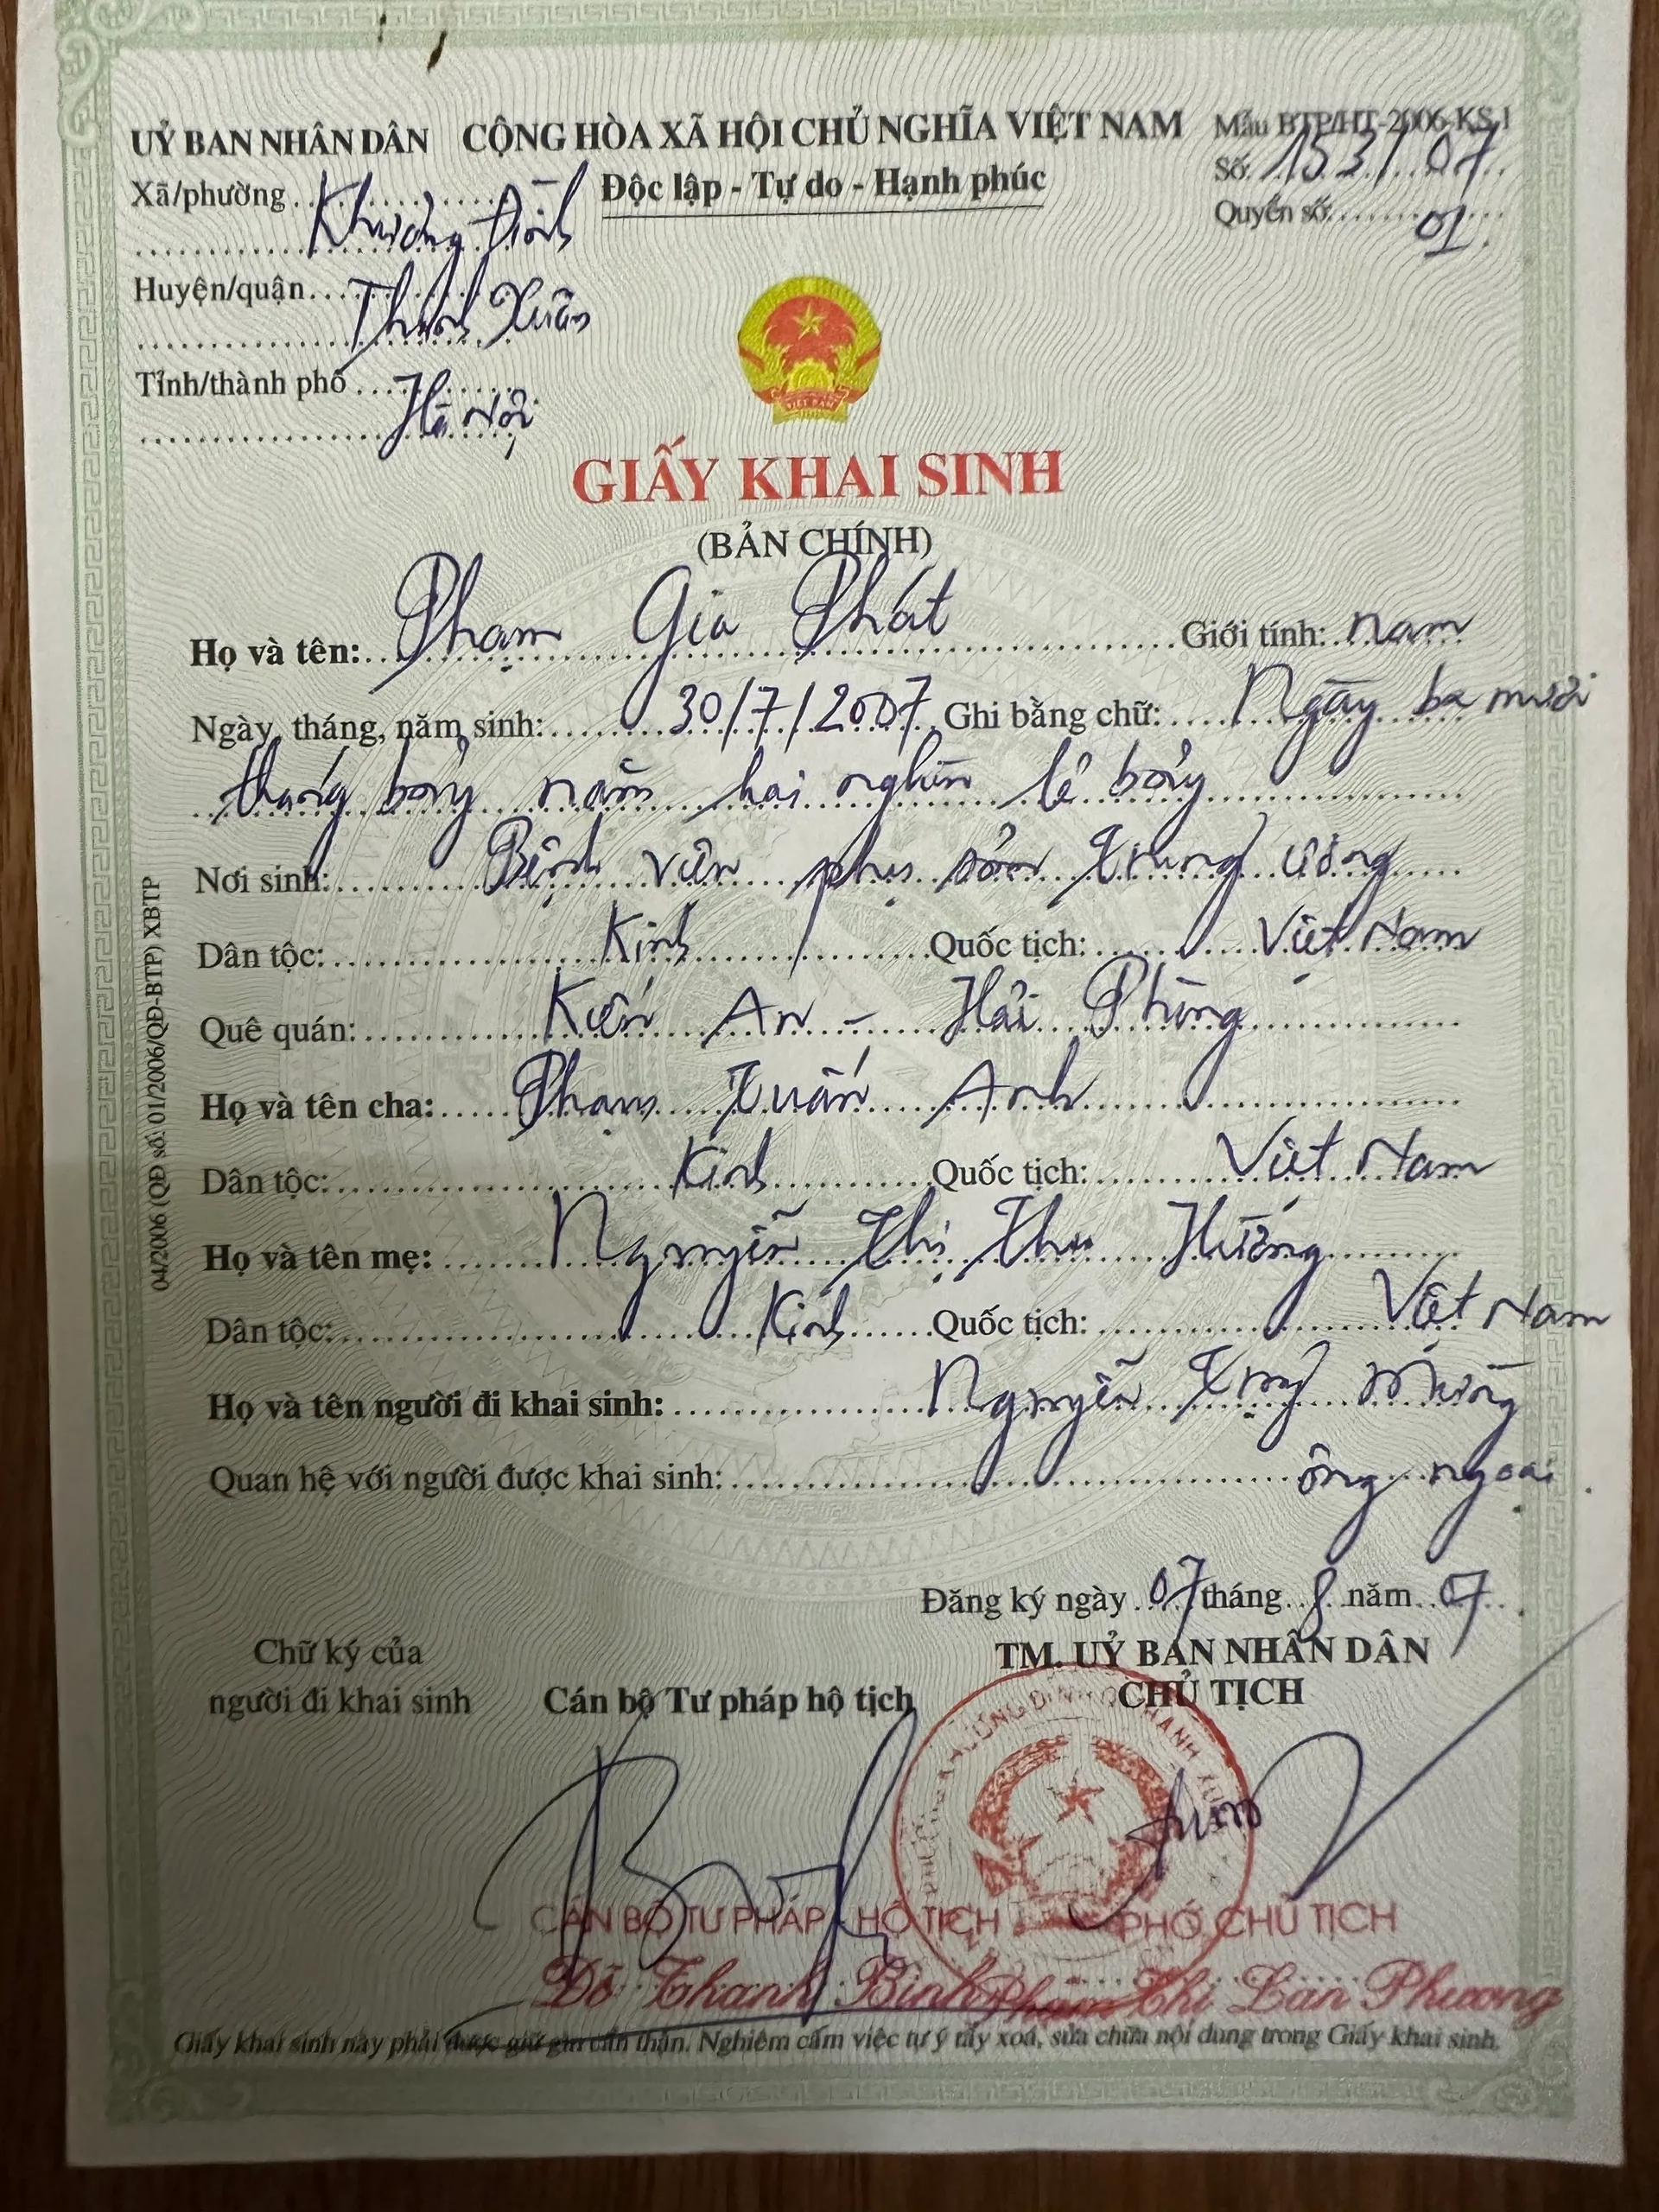 UỶ BAN NHÂN DÂN
Xã/phường Khương Đình
Huyện/quận Thanh Xuân
Tỉnh/thành phố Hà Nội
CỘNG HÒA XÃ HỘI CHỦ NGHĨA VIỆT NAM
Độc lập - Tự do - Hạnh phúc
Mẫu BTP/HT-2006-KS.1
Số: 153/07
Quyển số: 01
VIỆT NAM
GIẤY KHAI SINH
(BẢN CHÍNH)
Họ và tên: Phạm Gia Phát Giới tính: nam
Ngày, tháng, năm sinh: 30/7/2007 Ghi bằng chữ: Ngày ba mươi
tháng bảy năm hai nghìn lẻ bảy
Nơi sinh: Bệnh viện phụ sản Trung ương
Dân tộc: Kinh Quốc tịch: Việt Nam
Quê quán: Kiến An - Hải Phòng
Họ và tên cha: Phạm Xuân Anh
Dân tộc: Kinh Quốc tịch: Việt Nam
Họ và tên mẹ: Nguyễn Thị Thu Hương
Dân tộc: Kinh Quốc tịch: Việt Nam
Họ và tên người đi khai sinh: Nguyễn
Quan hệ với người được khai sinh: ông ngoại
Đăng ký ngày 07 tháng 8 năm 07
Chữ ký của
người đi khai sinh
Cán bộ Tư pháp hộ tịch
TM. UỶ BAN NHÂN DÂN
CHỦ TỊCH
CÁN BỘ TƯ PHÁP - HỘ TỊCH
Đỗ Thanh Bình
PHÓ CHỦ TỊCH
Phạm Thị Lan Phương
Giấy khai sinh này phải được giữ gìn cẩn thận. Nghiêm cấm việc tự ý tẩy xoá, sửa chữa nội dung trong Giấy khai sinh.
04/2006 (QĐ số: 01/2006/QĐ-BTP) XBTP